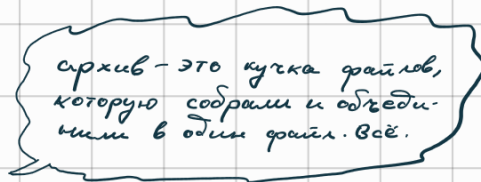 архив – это кучка файлов,
которую собрали и объеди-
нили в один файл. Всё.